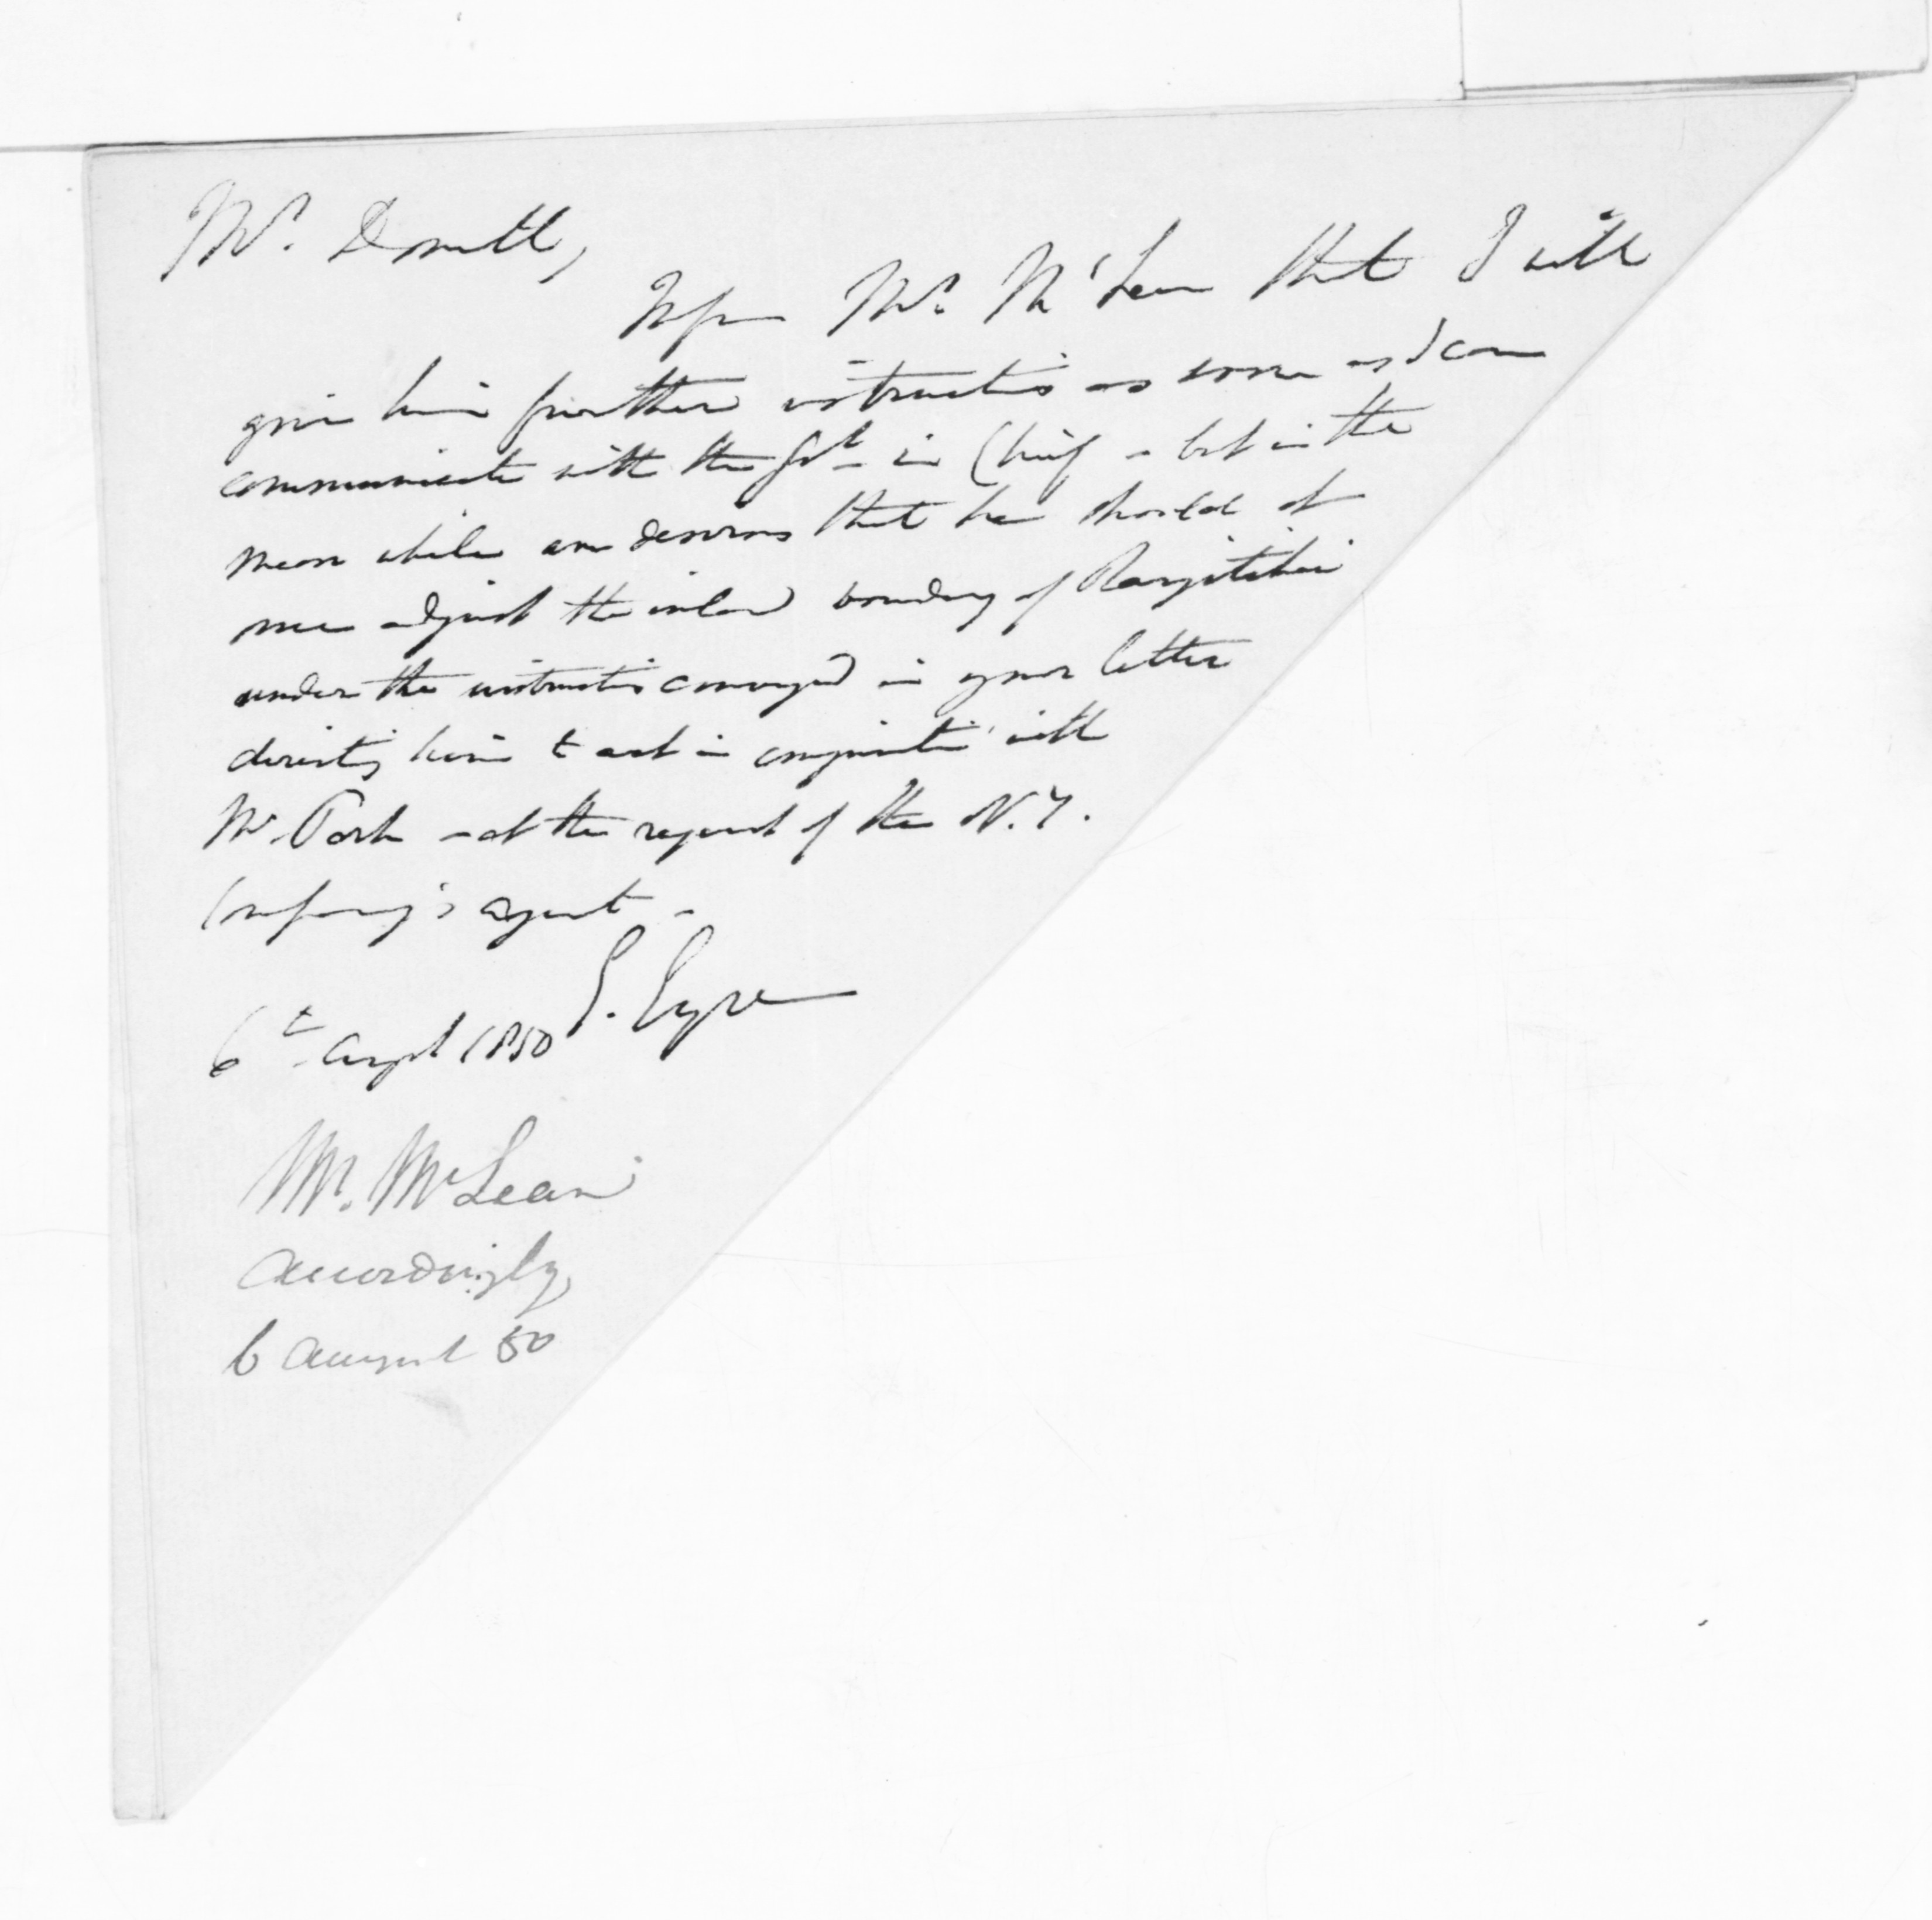 Mr. Domett,
Inform Mr. McLean that I will
give him further instructions as soon as I can
communicate with the Govr in Chief - but in the
mean while am desirous that he should at
once adjust the inland boundary of Rangitikei
under the instructions conveyed in your letter
directing him to act in conjunction with
Mr. Park - at the request of the N.Z.
Company's agent -
E. Eyre
6th August 1850
Mr. McLean
accordingly
6 August 50